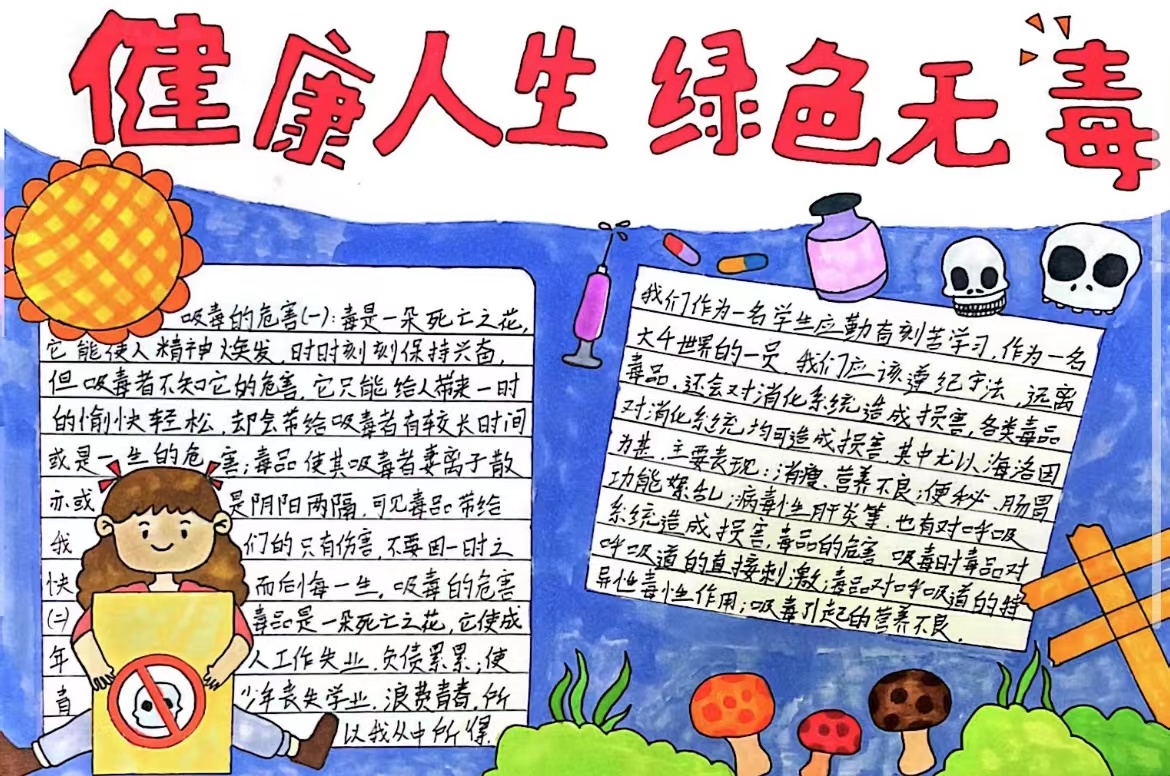 健康人生 绿色无毒
吸毒的危害(一):毒是一朵死亡之花,
它能使人精神焕发,时时刻刻保持兴奋,
但吸毒者不知它的危害,它只能给人带来一时
的愉快轻松,却会带给吸毒者有较长时间
或是一生的危害;毒品使其吸毒者妻离子散
亦或是阴阳两隔,可见毒品带给
我们的只有伤害,不要因一时之
快而后悔一生,吸毒的危害
(二)毒品是一朵死亡之花,它使成
年人工作失业,负债累累,使
青少年丧失学业,浪费青春,所
以我从中所得.
我们作为一名学生应勤奋刻苦学习,作为一名
大千世界的一员,我们应该遵纪守法,远离
毒品,还会对消化系统造成损害,各类毒品
对消化系统,均可造成损害,其中尤以海洛因
为甚,主要表现:消瘦、营养不良;便秘、肠胃
功能紊乱;病毒性肝炎等,也有对呼吸
系统造成损害,毒品的危害 吸毒时毒品对
呼吸道的直接刺激;毒品对呼吸道的特
异性毒性作用;吸毒引起的营养不良.